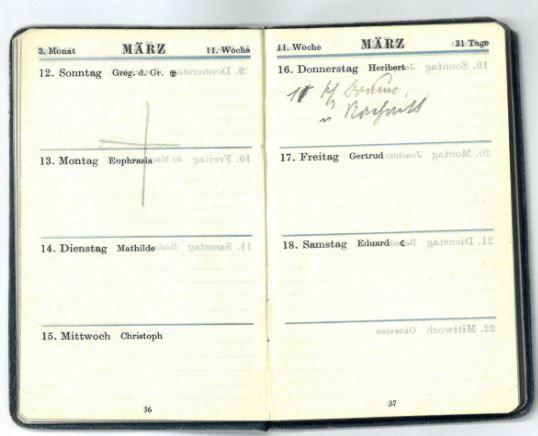 3. Monat MÄRZ 11. Woche
12. Sonntag Greg. d. Gr.
13. Montag Euphrasia
14. Dienstag Mathilde
15. Mittwoch Christoph
36
11. Woche MÄRZ 31 Tage
16. Donnerstag Heribert
17. Freitag Gertrud
18. Samstag Eduard ☾
37